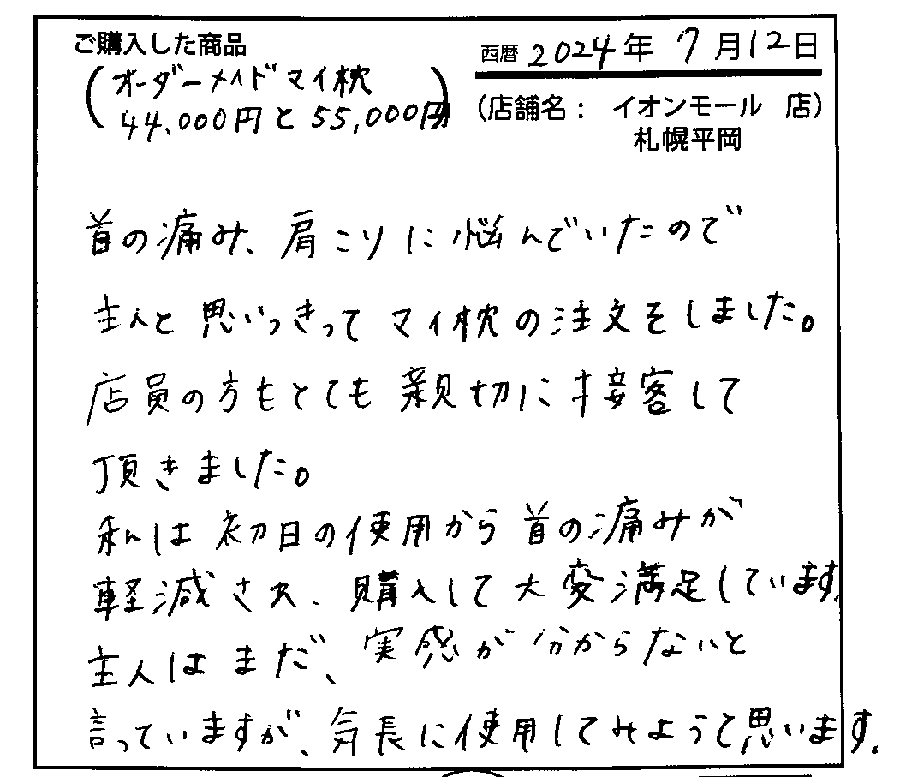 ご購入した商品
(オーダーメイドマイ枕
44,000円と55,000円)
西暦2024年7月12日
(店舗名: イオンモール 店)
札幌平岡
首の痛み、肩こりに悩んでいたので
主人と思いっきってマイ枕の注文をしました。
店員の方もとても親切に接客して
頂きました。
私は初日の使用から首の痛みが
軽減され、購入して大変満足しています。
主人はまだ、実感が分からないと
言っていますが、気長に使用してみようて思います。